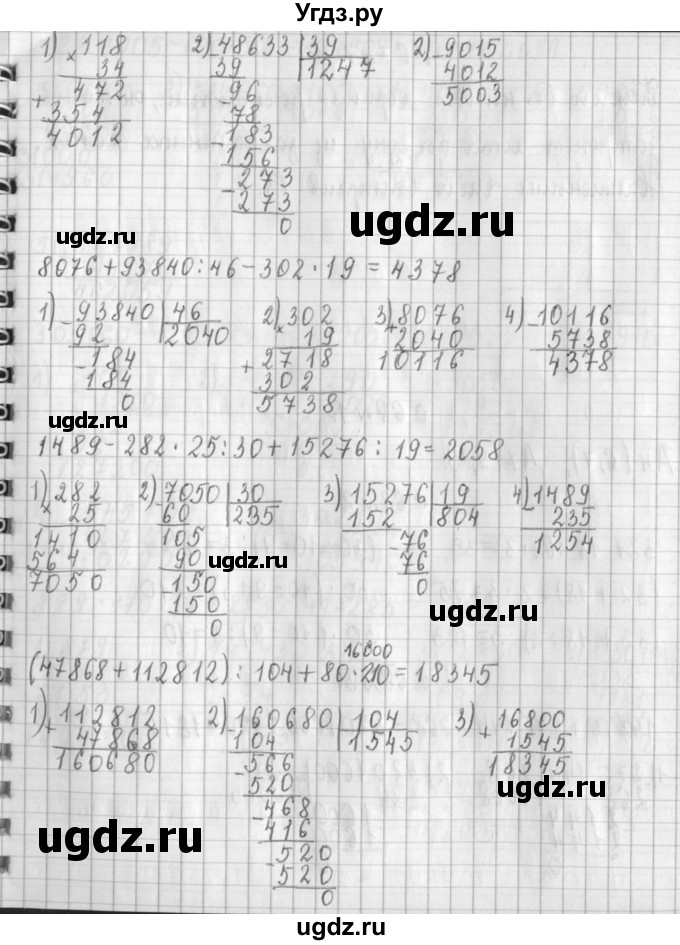 Угдз.ру
1) × 118   2) - 48633 | 39   2) - 9015
34   39   1247   4012
472   96   5003
+ 354   78
4012   - 183
156
- 273
273
0
ugdz.ru
ugdz.ru
8076 + 93840 : 46 - 302 · 19 = 4378
1) - 93840 | 46   2) × 302   3) + 8076   4) - 10116
92   2040   19   2040   5738
- 184   + 2718   10116   4378
184   302
0   5738
ugdz.ru
1489 - 282 · 25 : 30 + 15276 : 19 = 2058
1) × 282   2) - 7050 | 30   3) - 15276 | 19   4) - 1489
25   60   235   152   804   235
1410   105   - 76   1254
564   90   76
7050   - 150   0
150
0
ugdz.ru
ugdz.ru
16800
(47868 + 112812) : 104 + 80 · 210 = 18345
1) + 112812   2) - 160680 | 104   3) + 16800
47868   104   1545   1545
160680   - 566   18345
520
- 468
416
- 520
520
0
ugdz.ru
ugdz.ru
ugdz.ru